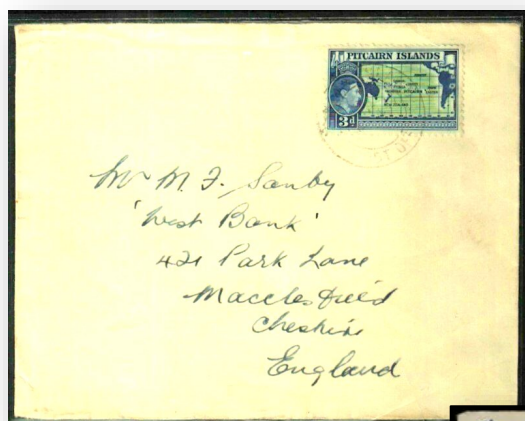 PITCAIRN ISLANDS
3d
Mr M. F. Sanby
'West Bank'
421 Park Lane
Macclesfield
Cheshire
England